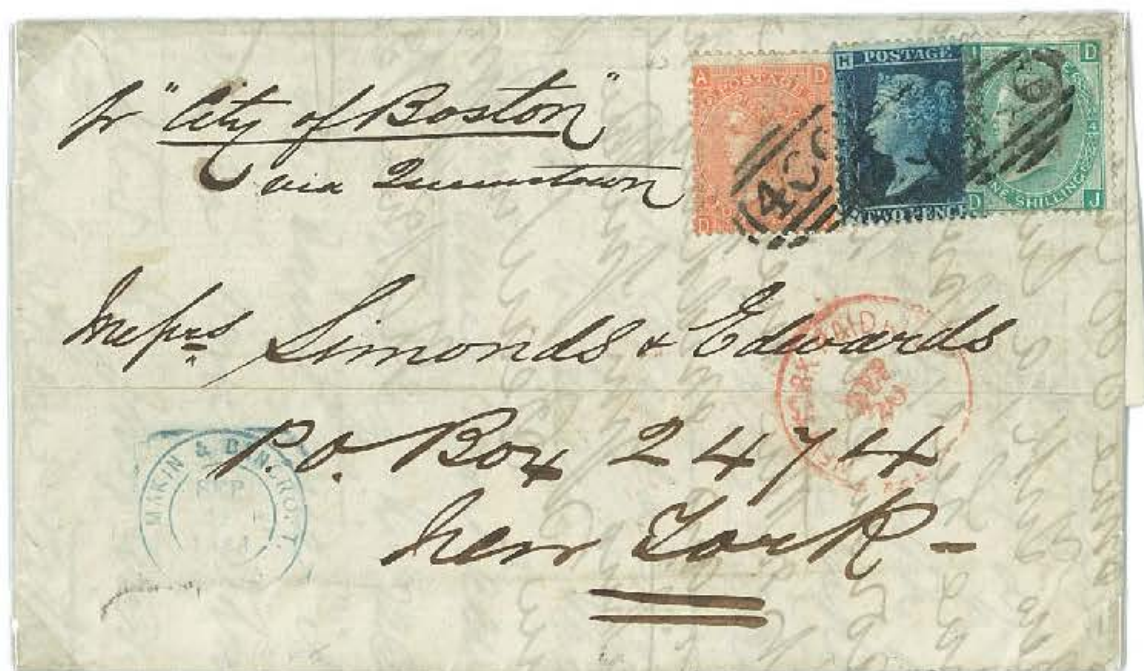 pr "City of Boston"
via Queenstown
A D
D
H POSTAGE
TWO PENCE
I D
ONE SHILLING
D J
466
Messrs Simonds & Edwards
P.O. Box 2474
New York
PAID
MAKIN & BANCROFT.
SEP